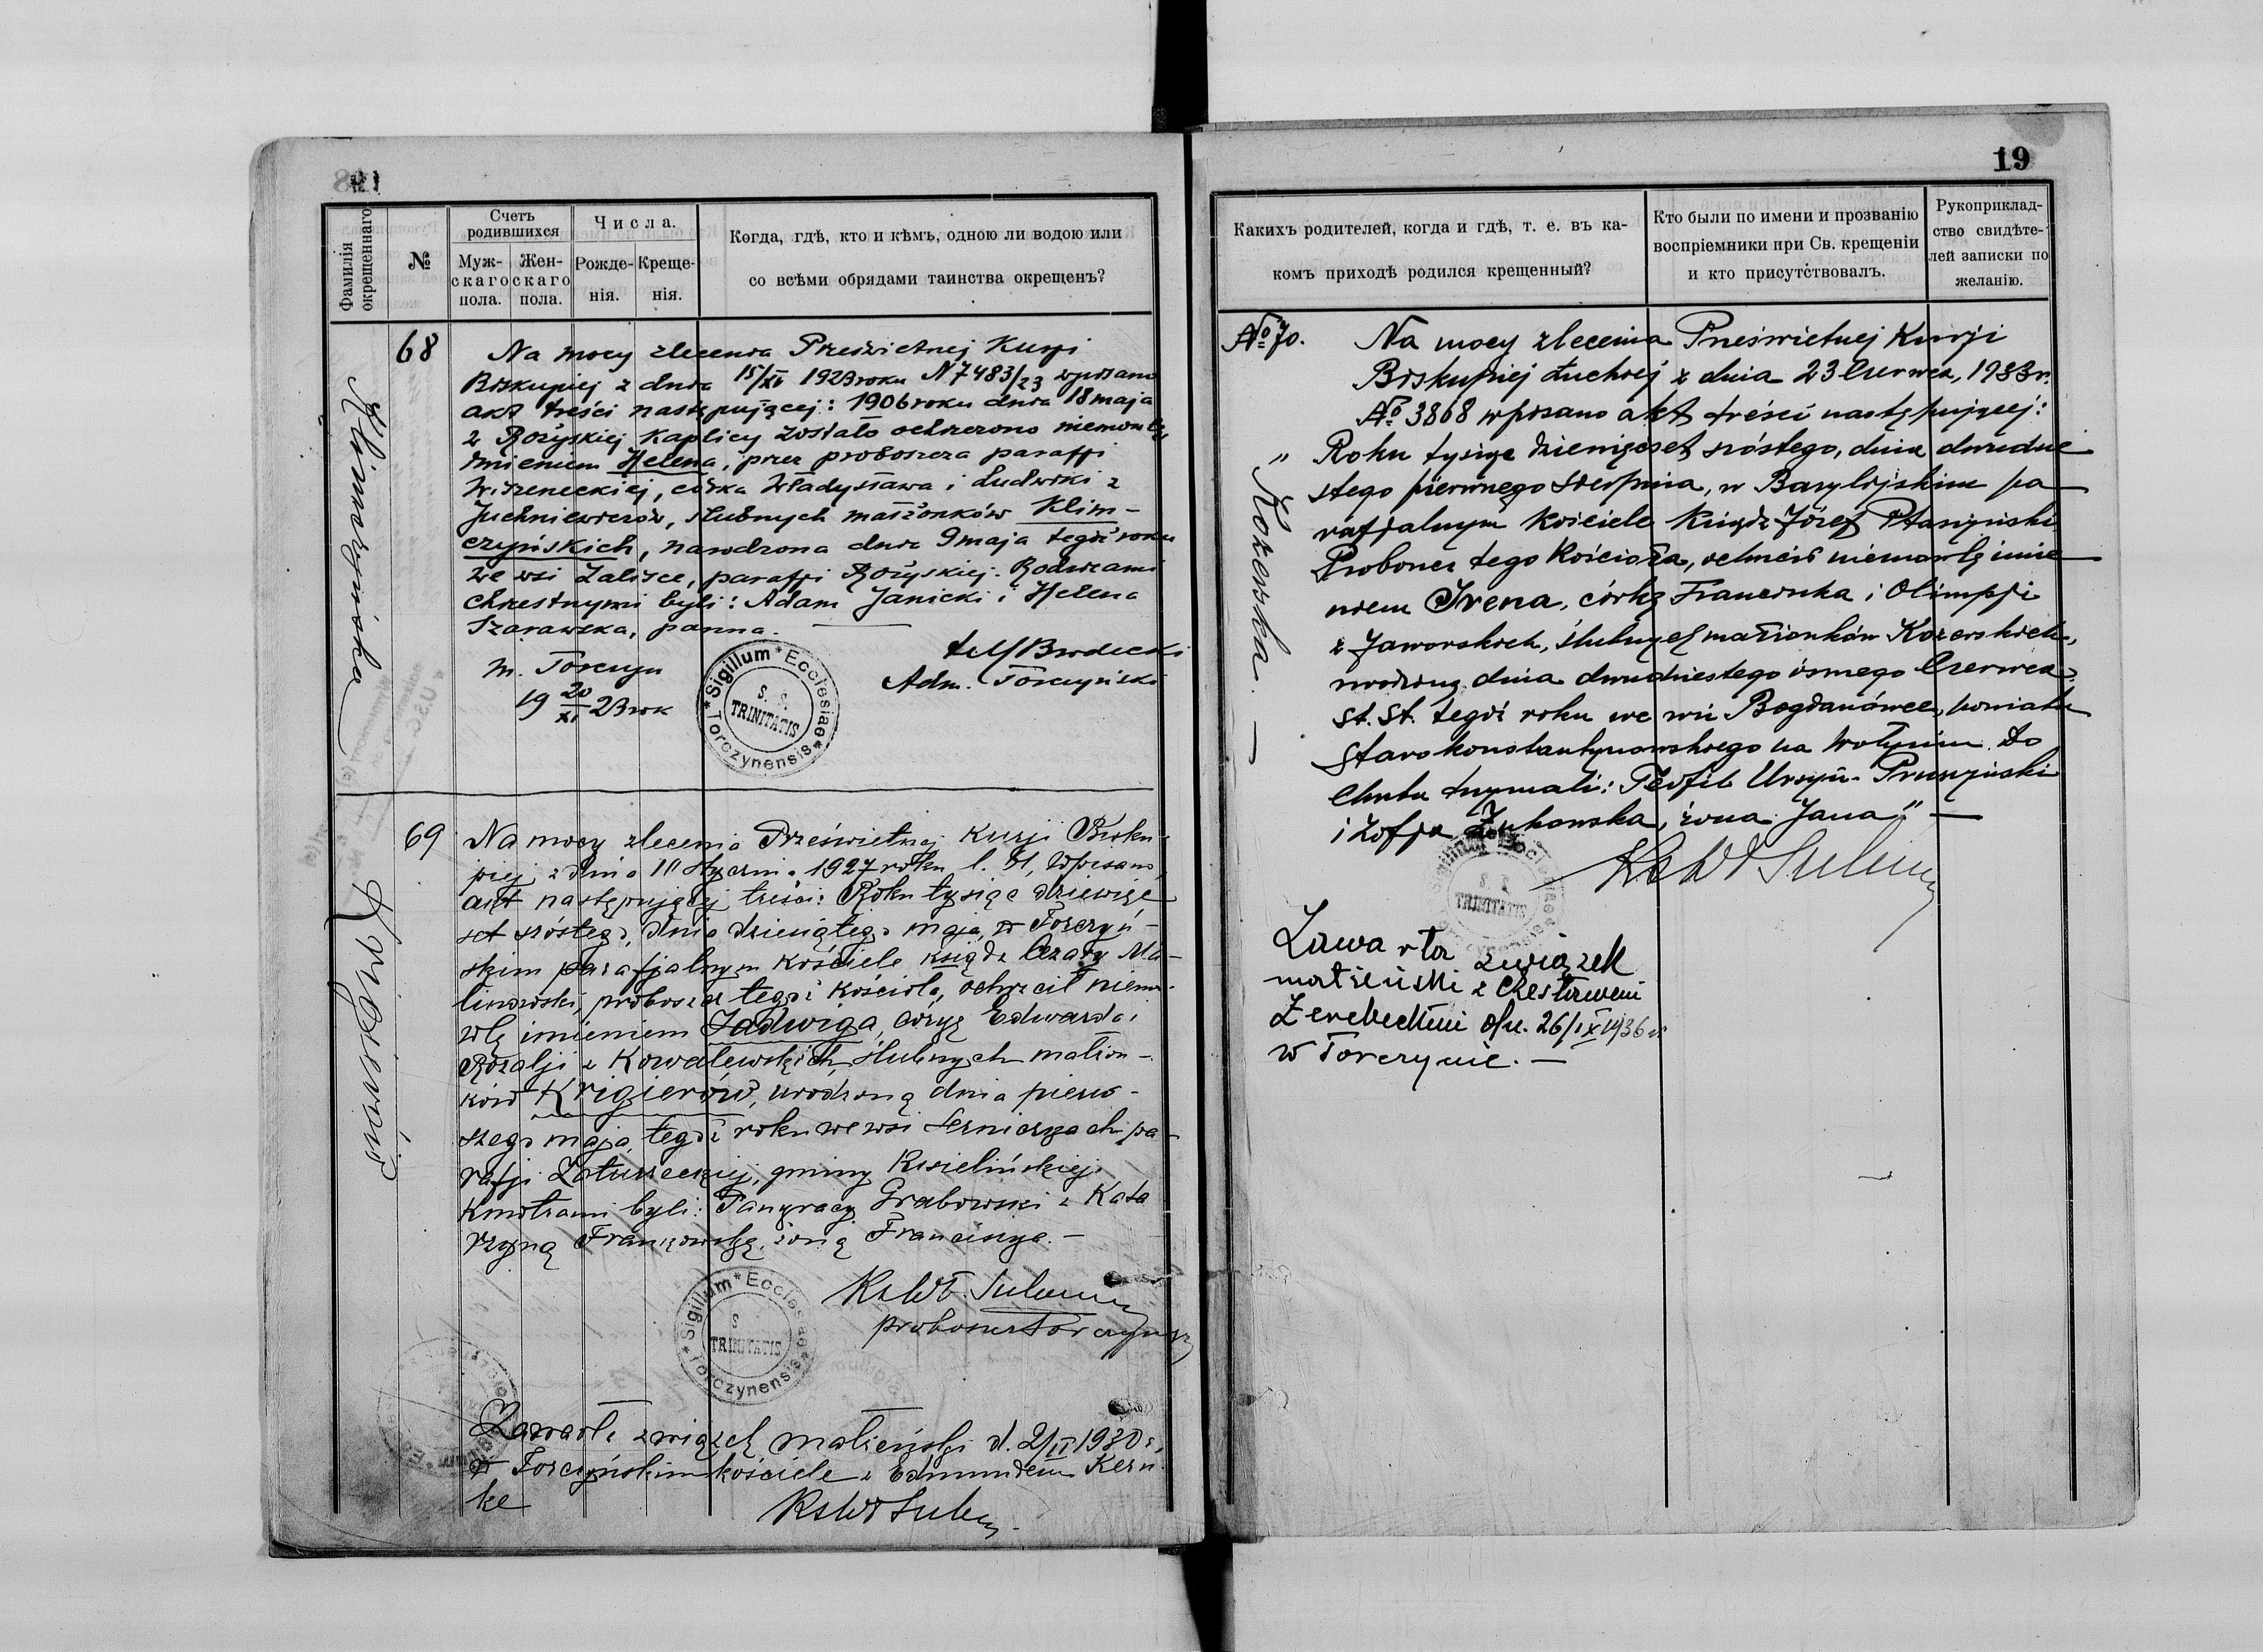 19
Фамилія окрещеннаго
№
Счетъ родившихся
Муж-
скаго
пола.
Жен-
скаго
пола.
Числа.
Рожде-
нія.
Креще-
нія.
Когда, гдѣ, кто и кѣмъ, одною ли водою или
со всѣми обрядами таинства окрещенъ?
68
Klimczyńska
Na mocy zlecenia Prześwietnej Kurji
Biskupiej z dnia 15/XI 1923 roku N 7483/23 wpisano
akt treści następującej: 1906 roku dnia 18 maja
z Rożyskiej Kaplicy zostało ochrzczono niemowlę
imieniem Helena, przez proboszcza parafji
córka Władysława i Ludwiki z
Juchniewiczów, ślubnych małżonków Klim-
czyńskich, narodzona dnia 9 maja tegoż roku
we wsi Zalisce, parafji Rożyskiej. Rodzicami
chrzestnymi byli: Adam Janicki i Helena
Szarawska, panna.
m. Torczyn
19 20/XI 23 rok
Adm. Torczyński
Sigillum Ecclesiae
S. S.
TRINITATIS
Torczynensis
69
Na mocy zlecenia Prześwietnej Kurji Bisku-
piej z dnia 11 Stycznia 1927 roku l. 51, wpisano
akt następującej treści: Roku tysiąc dziewięć
set szóstego, dnia dziesiątego maja, w Torczyń-
skim parafjalnym Kościele ksiądz Cezary Ma-
linowski, proboszcz tegoż kościoła, ochrzcił niemo-
wlę imieniem Jadwiga, córkę Edwarda i
Rozalji z Kowalewskich, ślubnych małżon-
ków Krigierów, urodzoną dnia pierw-
szego maja tegoż roku we wsi Serniczkach pa-
rafji Zaturceckiej, gminy Kisielińskiej.
Kmotrami byli: Pankracy Grabowski z Kata
rzyną Frankowską, żoną Franciszka.
Ks Wł
proboszcz Torczyński
Sigillum Ecclesiae
S. S.
TRINITATIS
Torczynensis
Zawarła związek małżeński d. 2/II 1930 r.
w Torczyńskim kościele z Edmundem Kern-
ke
Ks Wł
Какихъ родителей, когда и гдѣ, т. е. въ ка-
комъ приходѣ родился крещенный?
Кто были по имени и прозванію
воспріемники при Св. крещеніи
и кто присутствовалъ.
Рукоприклад-
ство свидѣте-
лей записки по
желанію.
№ 70.
Kozerska.
Na mocy zlecenia Prześwietnej Kurji
Biskupiej Łuckiej z dnia 23 Czerwca, 1933 r.
№ 3868 wpisano akt treści następującej:
"Roku tysiąc dziewięćset szóstego, dnia dwudzie
stego pierwszego Sierpnia, w Bazylijskim pa
rafjalnym Kościele Ksiądz Józef Ptaszyński
Proboszcz tego Kościoła, ochrzcił niemowlę imie
niem Irena, córkę Franciszka i Olimpji
z Jaworskich, ślubnych małżonków Kozerskich,
urodzoną dnia dwudziestego ósmego Czerwca
st. st. tegoż roku we wsi Bogdanówce, powiatu
Starokonstantynowskiego na Wołyniu. Do
Chrztu trzymali: Teofil Ursyn-Pruszyński
i Zofja Żukowska, żona Jana"
Ks Wł
Sigillum Ecclesiae
S. S.
TRINITATIS
Zawarła związek
małżeński z Czesławem
Żerebeckim dn. 26/IX 1936 r.
w Torczynie.